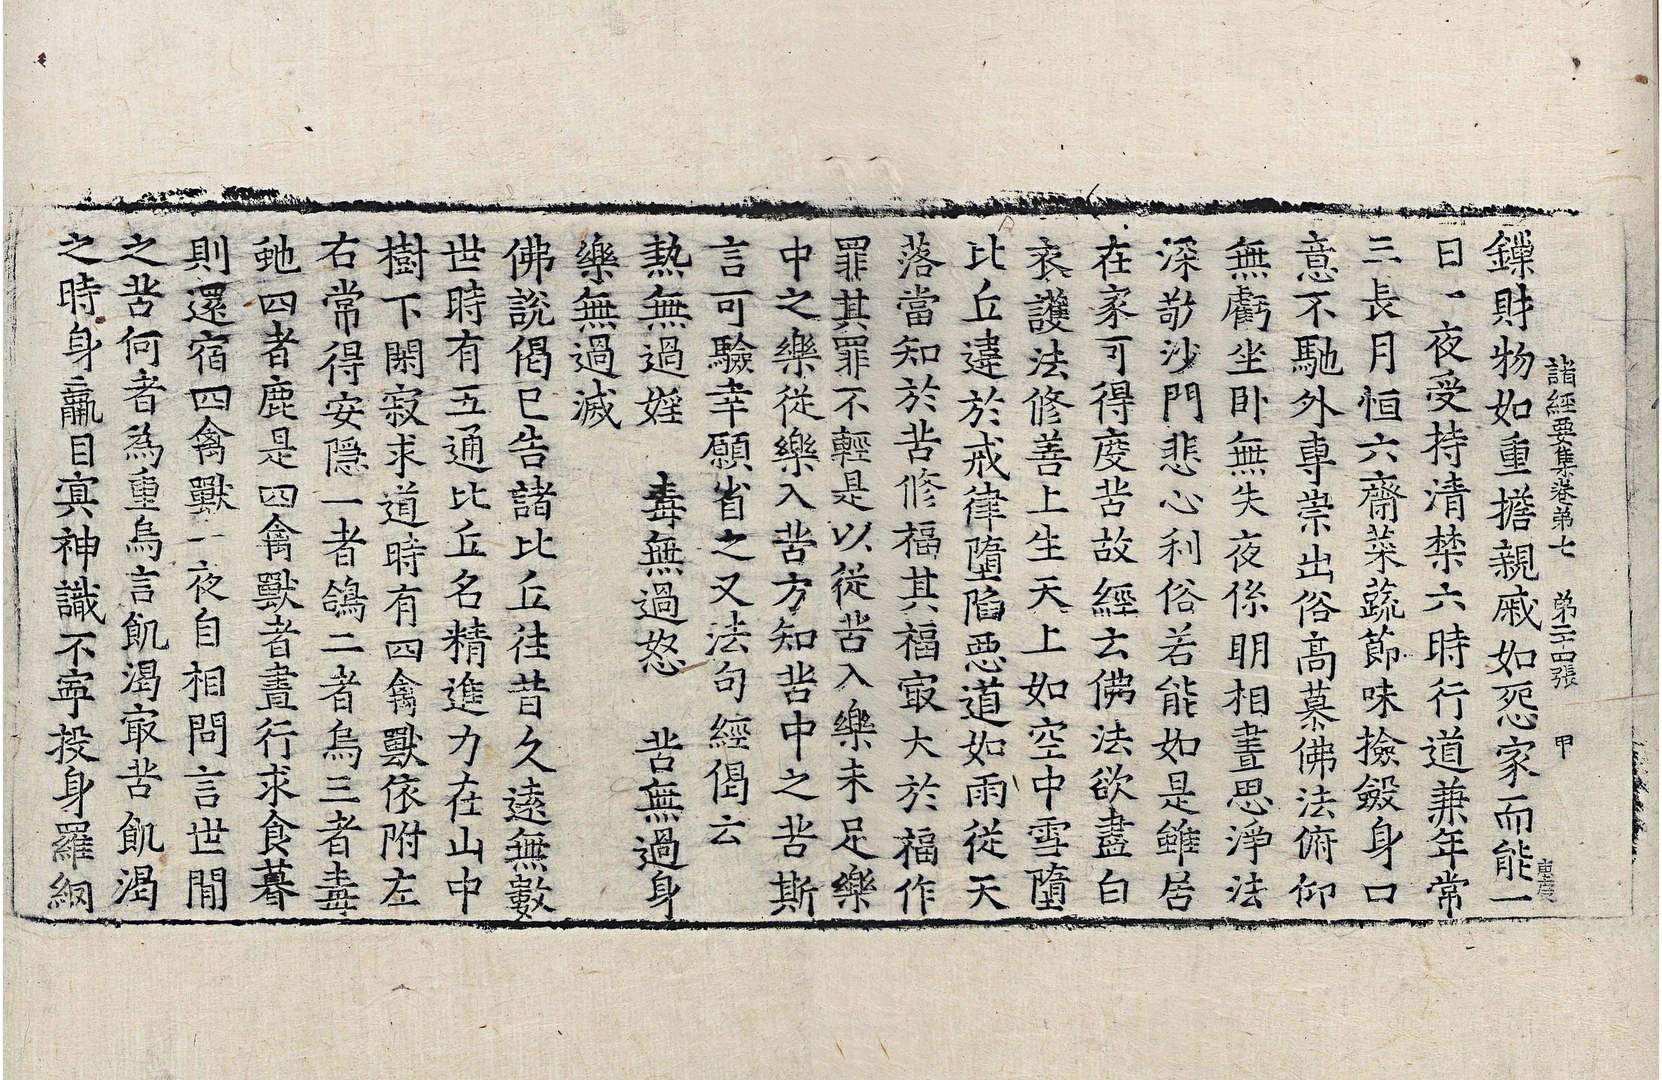 諸經要集卷第七 第二十四張 甲
鏁財物如重擔親戚如怨家而能一
日一夜受持清禁六時行道兼年常
三長月恒六齋菜蔬節味撿斂身口
意不馳外專崇出俗高慕佛法俯仰
無虧坐卧無失夜係明相晝思淨法
深敬沙門悲心利俗若能如是雖居
在家可得度苦故經云佛法欲盡白
衣護法修善上生天上如空中雪墮
比丘違於戒律墮陷惡道如雨從天
落當知於苦修福其福㝡大於福作
罪其罪不輕是以從苦入樂未足樂
中之樂從樂入苦方知苦中之苦斯
言可驗幸願省之又法句經偈云
熱無過婬 毒無過怒 苦無過身
樂無過滅
佛說偈已告諸比丘往昔久遠無數
世時有五通比丘名精進力在山中
樹下閑寂求道時有四禽獸依附左
右常得安隱一者鴿二者烏三者毒
虵四者鹿是四禽獸者晝行求食暮
則還宿四禽獸一夜自相問言世間
之苦何者為重烏言飢渴㝡苦飢渴
之時身羸目冥神識不寧投身羅網